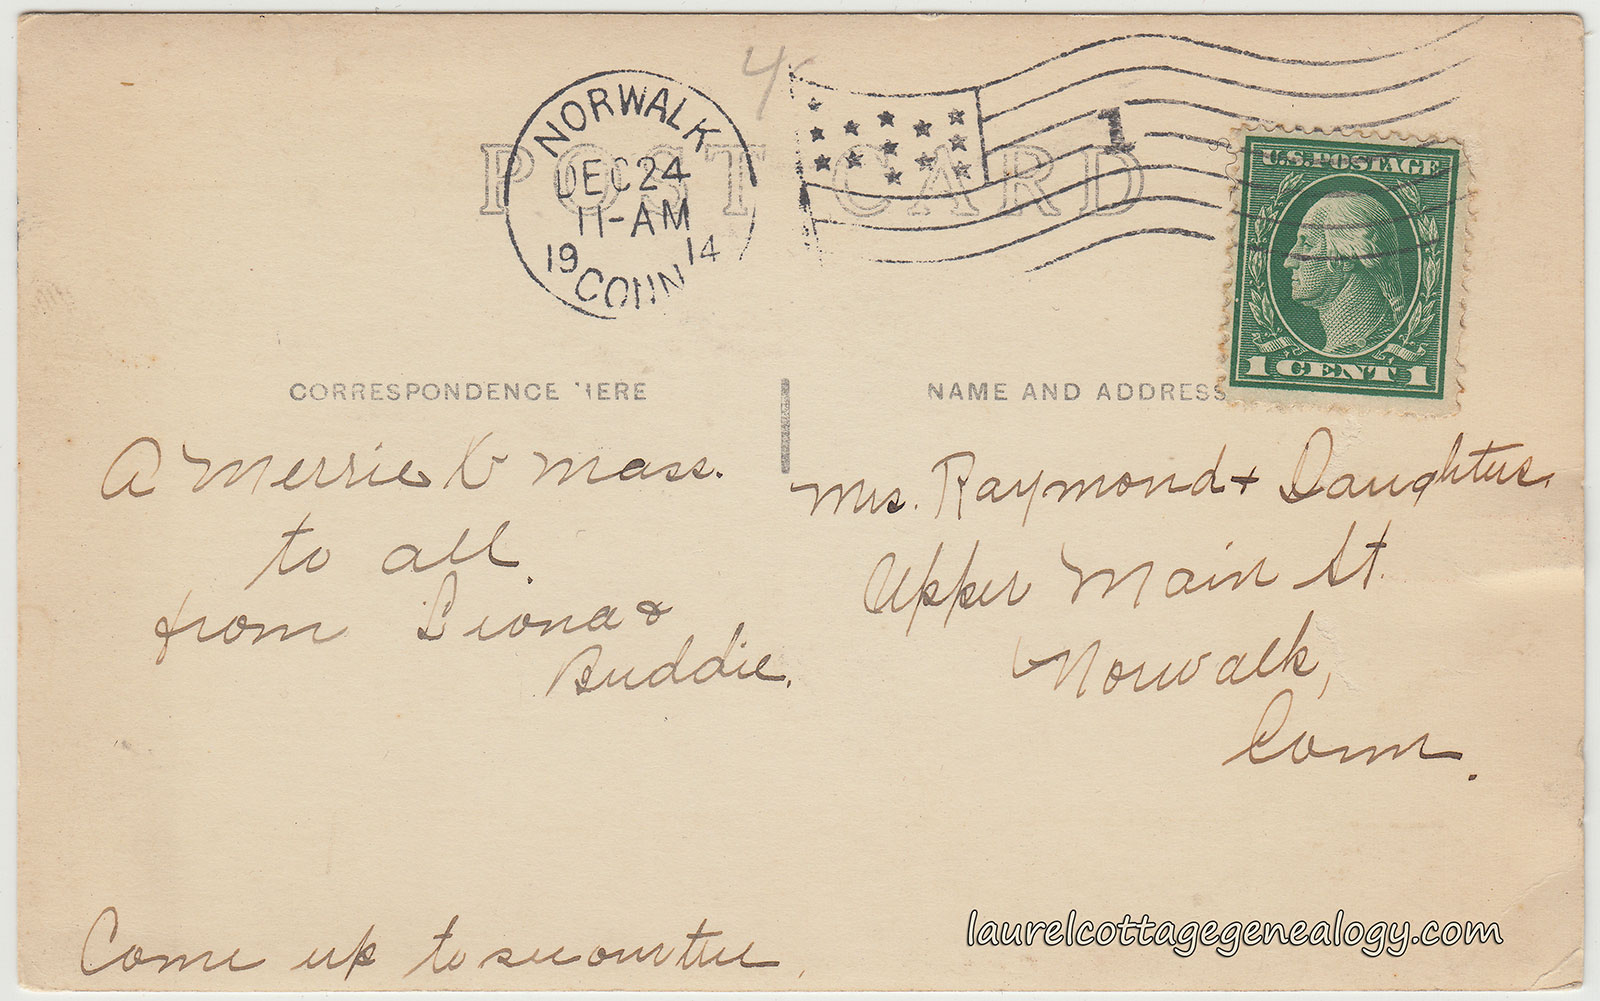 4
NORWALK
DEC 24
11-AM
19 14
CONN
1
POST CARD
U.S. POSTAGE
1 CENT 1
CORRESPONDENCE HERE
NAME AND ADDRESS
A Merrie X mass.
to all.
from Leona &
Buddie.
Mrs. Raymond + Daughters.
Upper Main St.
Norwalk,
Conn.
Come up to see our tree.
laurelcottagegenealogy.com